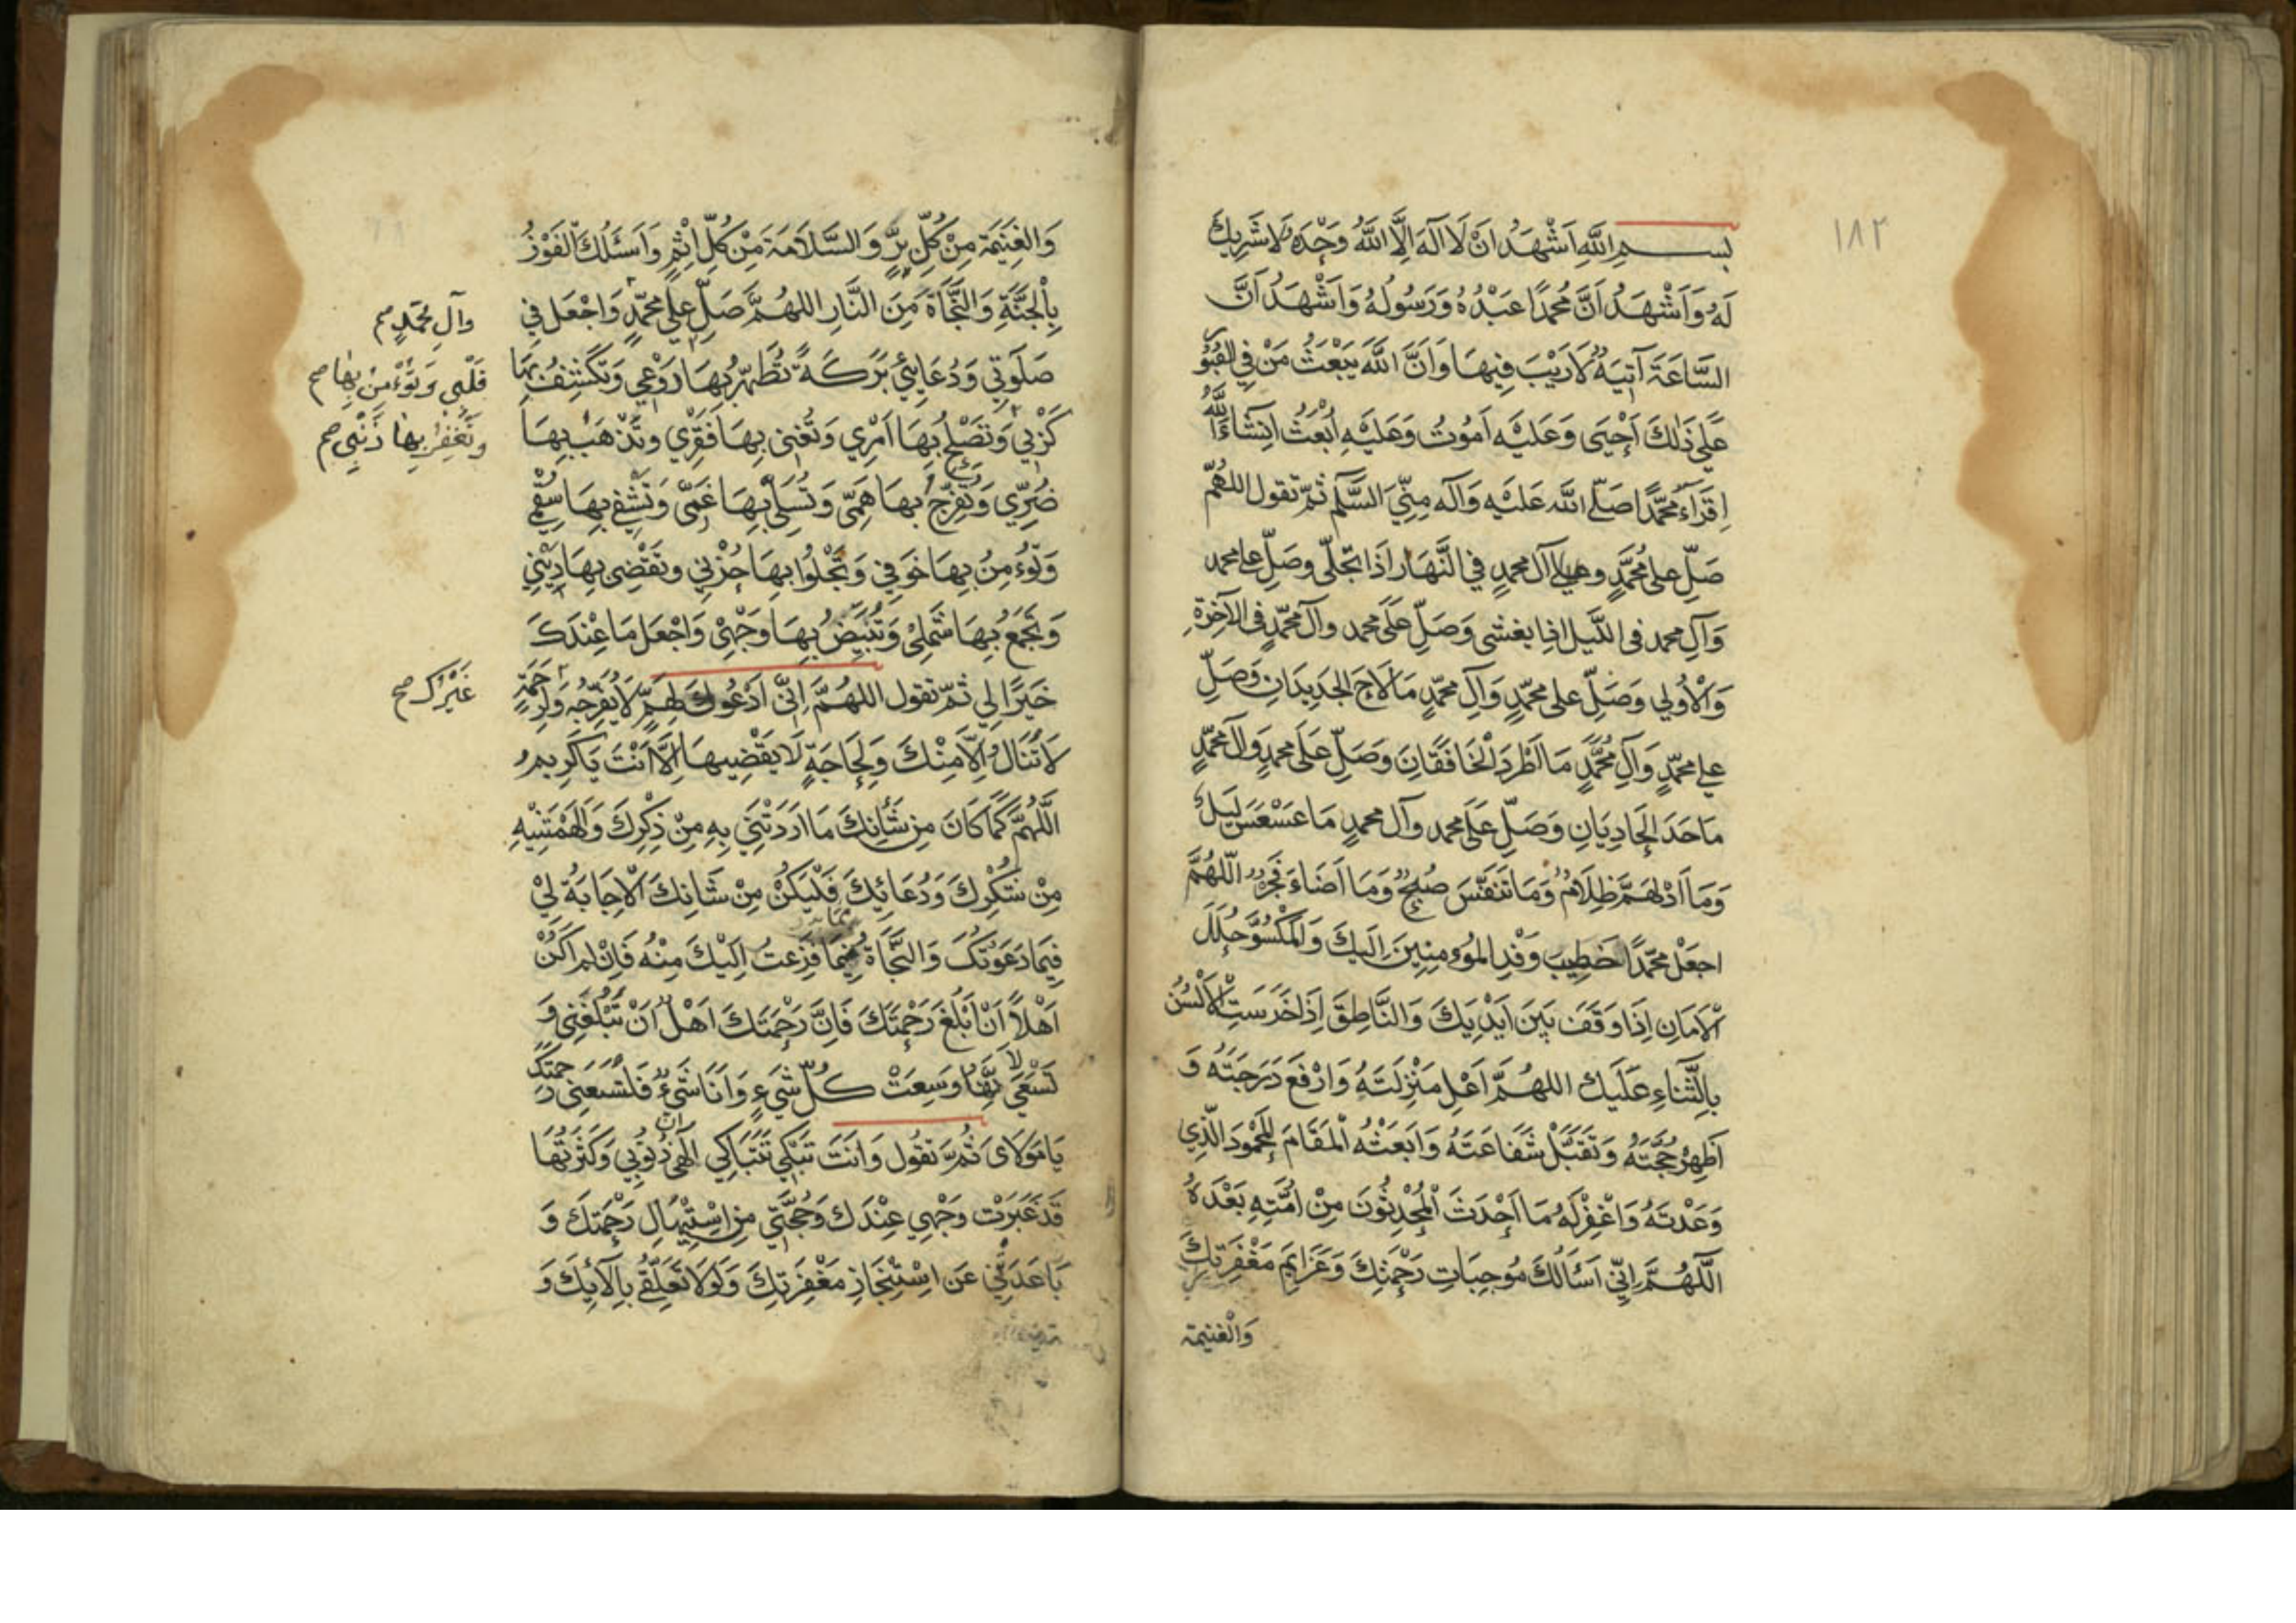 ١٨٢
بسم الله اشهد ان لا اله الا الله وحده لا شريك
له واشهد ان محمدا عبده ورسوله واشهد ان
الساعة آتية لا ريب فيها وان الله يبعث من في القبور
على ذلك احيى وعليه اموت وعليه ابعث انشاء الله
اقراء محمدا صلى الله عليه وآله مني السلم ثم تقول اللهم
صل على محمد وعلى آل محمد في النهار اذا تجلى وصل على محمد
وآل محمد في الليل اذا يغشى وصل على محمد وآل محمد في الآخرة
والأولى وصل على محمد وآل محمد ما لاح الجديدان وصل
على محمد وآل محمد ما اطرد الخافقان وصل على محمد وآل محمد
ما حدا الحاديان وصل على محمد وآل محمد ما عسعس ليل
وما ادلهم ظلام وما تنفس صبح وما اضاء فجر اللهم
اجعل محمدا خطيب وفد المؤمنين اليك والمكسو حلل
الأمان اذا وقف بين ايديك والناطق اذا خرست الألسن
بالثناء عليك اللهم اعل منزلته وارفع درجته و
اظهر حجته وتقبل شفاعته وابعثه المقام المحمود الذي
وعدته واغفر له ما احدث المحدثون من امته بعده
اللهم اني اسألك موجبات رحمتك وعزايم مغفرتك
والغنيمة
والغنيمة من كل بر والسلامة من كل اثم واسئلك الفوز
بالجنة والنجاة من النار اللهم صل على محمد واجعل في
وآل محمد صح
صلوتي ودعائي بركة تطهر بها روعي وتكشف بها
قلبي وتؤمن بها صح
كربي وتصلح بها امري وتغني بها فقري وتذهب بها
وتغفر بها ذنبي صح
ضري وتفرج بها همي وتسلي بها غمي وتشفي بها سقمي
وتؤمن بها خوفي وتجلوا بها حزني وتقضي بها ديني
وتجمع بها شملي وتبيض بها وجهي واجعل ما عندك
خيرا لي ثم تقول اللهم اني ادعوك لهم لا يفرجه ولرحمة
غيرك صح
لا تنال الا منك ولحاجة لا يقضيها الا انت يا كريم
اللهم كما كان من شأنك ما اردتني به من ذكرك والهمتنيه
من شكرك ودعائك فليكن من شانك الاجابة لي
فيما دعوتك والنجاة فيما فزعت اليك منه فان لم اكن
اهلا ان ابلغ رحمتك فان رحمتك اهل ان تبلغني و
تسعني لانها وسعت كل شيء وانا شيء فلتسعني رحمتك
يا مولاى ثم تقول وانت تبكي تتباكي الهى ان ذنوبي وكثرتها
قد غبرت وجهي عندك وحجبتني من استيهال رحمتك و
باعدتني عن استنجاز مغفرتك ولولا تعلقي بآلائك و